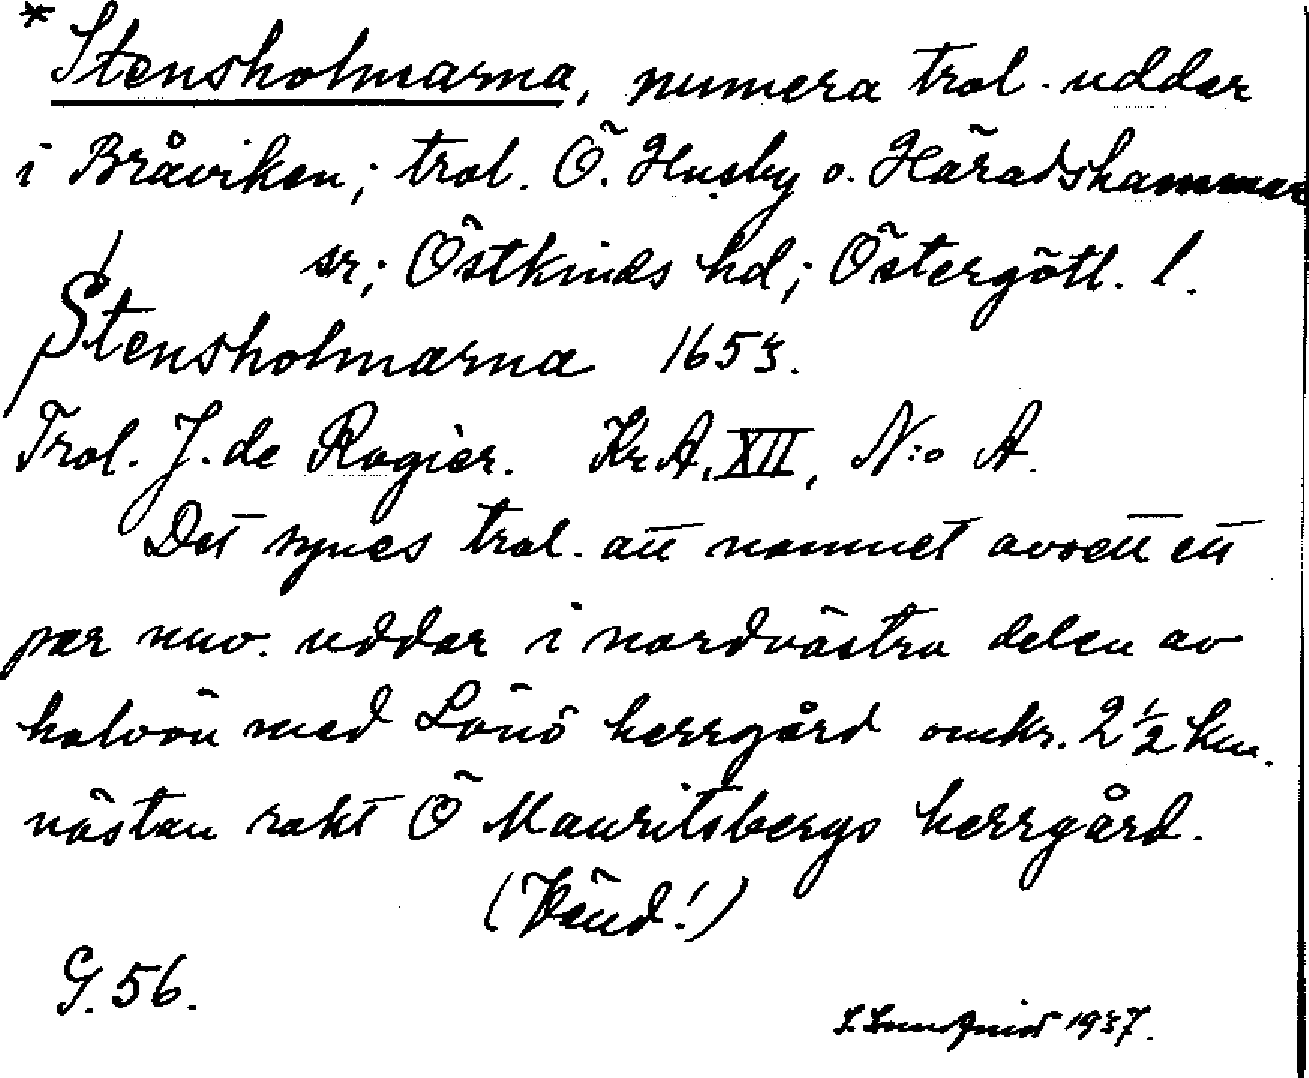 *Stensholmarna, numera trol. uddar
i Bråviken; trol. Ö. Husby o. Häradshammar
sr; Östkinds hd; Östergötl. l.
Stensholmarna 1653.
Trol. J. de Rogier. Kr.A. XII, N:o A.
Det synes trol. att namnet avsett ett
par nuv. uddar i nordvästra delen av
halvön med Lönö herrgård omkr. 2 1/2 km.
nästan rakt Ö Mauritsbergs herrgård.
(Vänd!)
G. 56.
1937.